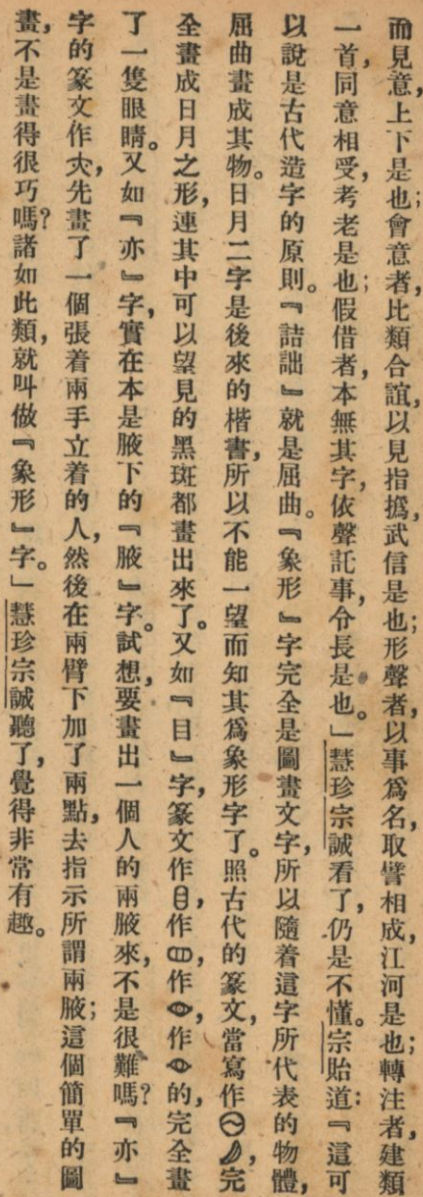 而見意，上下是也；會意者，比類合誼，以見指撝，武信是也；形聲者，以事爲名，取譬相成，江河是也；轉注者，建類
一首，同意相受，考老是也；假借者，本無其字，依聲託事，令長是也。」慧珍宗誠看了，仍是不懂。宗貽道：『這可
以說是古代造字的原則。『詰詘』就是屈曲。『象形』字完全是圖畫文字，所以隨着這字所代表的物體，
屈曲畫成其物。日月二字是後來的楷書，所以不能一望而知其爲象形字了。照古代的篆文，當寫作，完
全畫成日月之形，連其中可以望見的黑斑都畫出來了。又如『目』字，篆文作，作，作，作的，完全畫
了一隻眼睛。又如『亦』字，實在本是腋下的『腋』字。試想，要畫出一個人的兩腋來，不是很難嗎？『亦』
字的篆文作，先畫了一個張着兩手立着的人，然後在兩臂下加了兩點，去指示所謂兩腋；這個簡單的圖
畫，不是畫得很巧嗎？諸如此類，就叫做『象形』字。」慧珍宗誠聽了，覺得非常有趣。